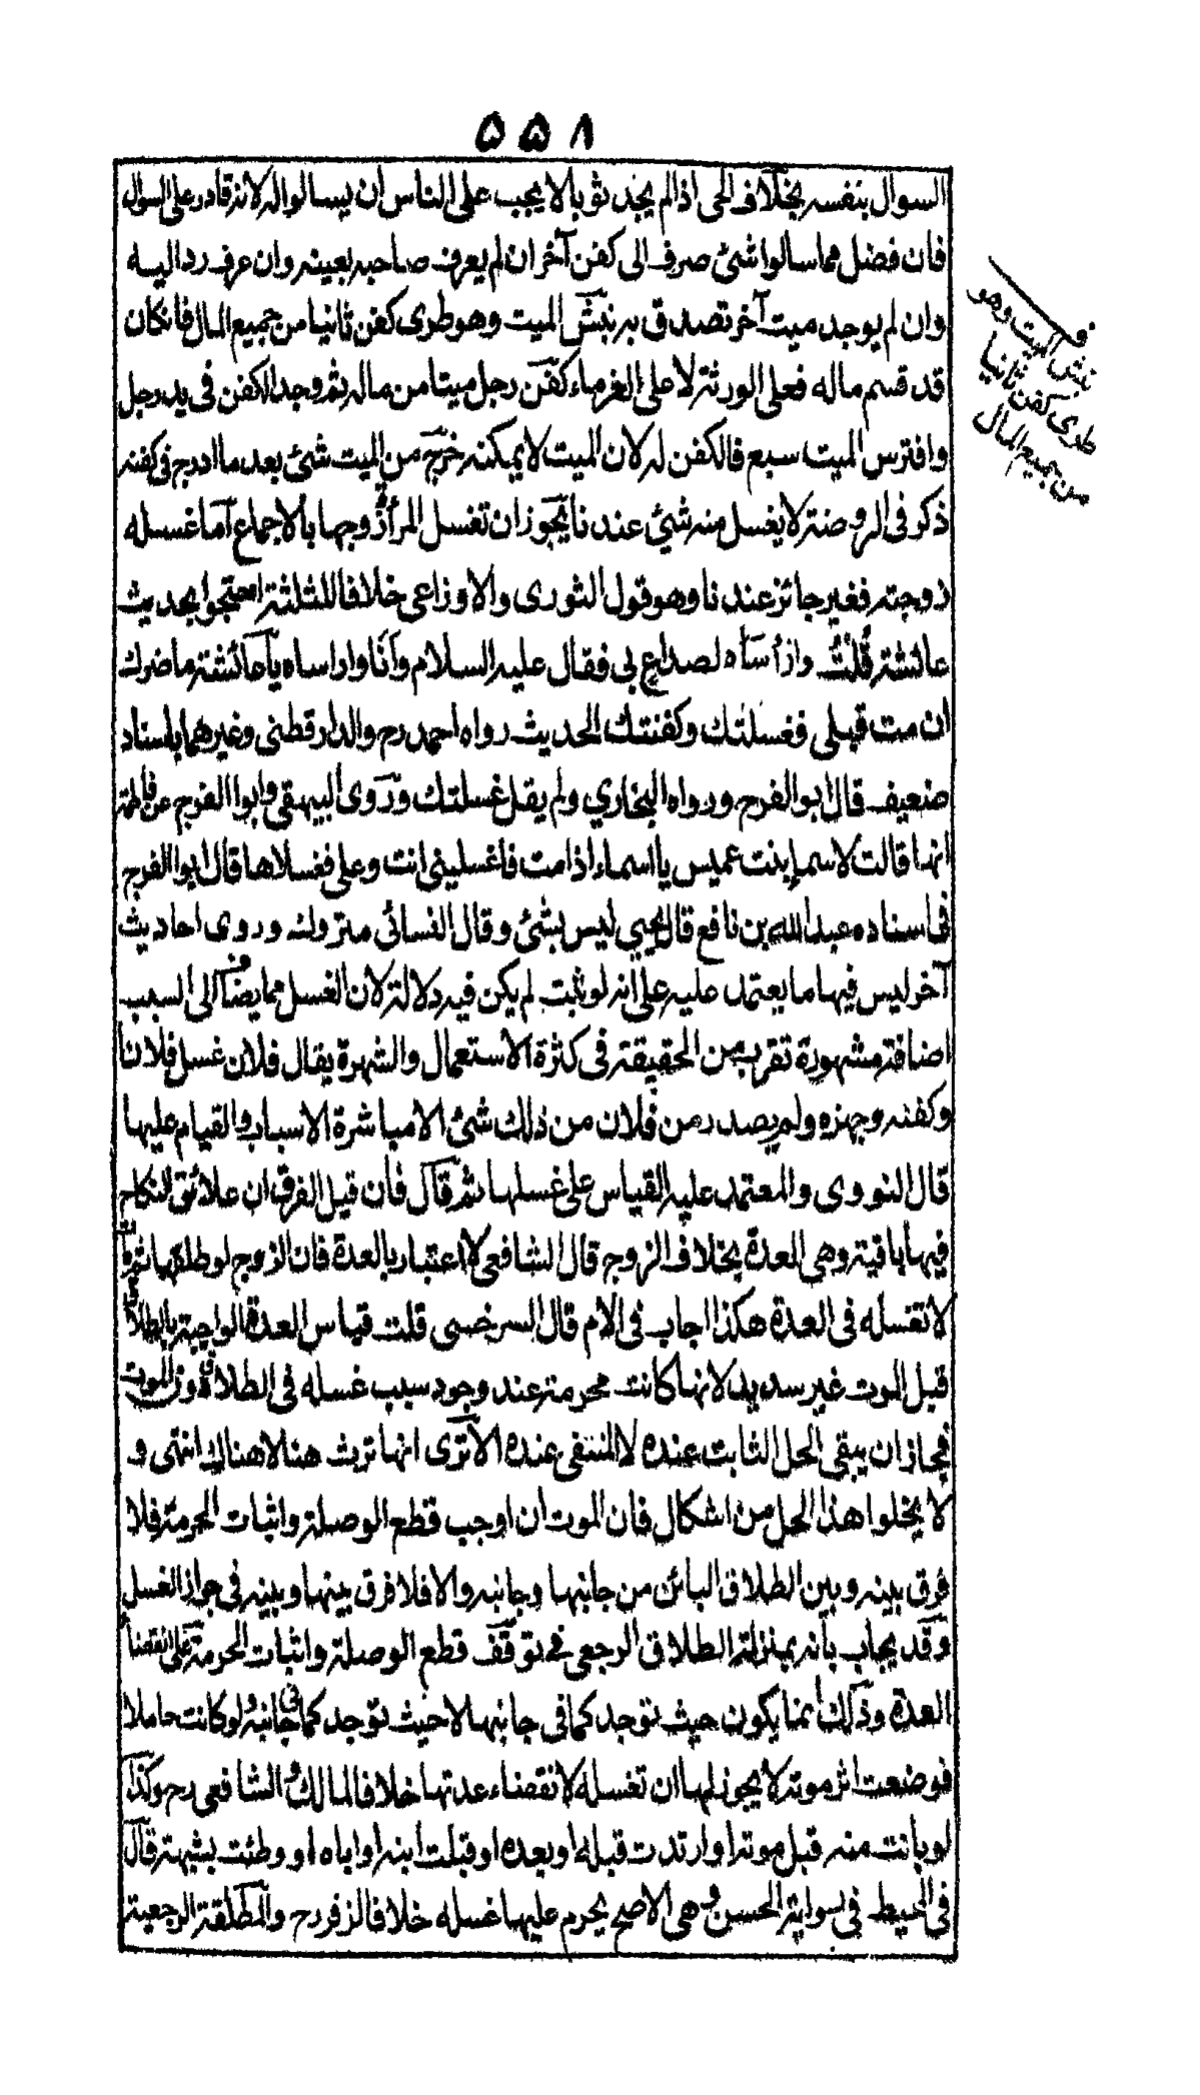 ٥٥٨
السوال بنفسه بخلاف الحى اذا لم يجد ثوبا لا يجب على الناس ان يسالوا له لانه قادر على السوال
فان فضل مما سالوا شئ صرف الى كفن آخر ان لم يعرف صاحبه بعينه وان عرف رد اليه
وان لم يوجد ميت آخر تصدق به نبش الميت وهو طرى كفن ثانيا من جميع المال فان كان
قد قسم ماله فعلى الورثة لا على الغرماء كفن رجل ميتا من ماله ثم وجد الكفن فى يد رجل
وافترس الميت سبع فالكفن له لان الميت لا يمكنه من الميت شئ بعد ما ادرج فى كفنه
ذكر فى الروضة لا يغسل منه شئ عندنا يجوز ان تغسل المرأة زوجها بالاجماع اما غسله
زوجته فغير جائز عندنا وهو قول الثورى والاوزاعى خلافا للثلثة احتجوا بحديث
عائشة قلت وارأساه لصداع بى فقال عليه السلام وانا واراساه يا عائشة ما ضرك
ان مت قبلى فغسلتك وكفنتك الحديث رواه احمد رح والدارقطنى وغيرهما باسناد
ضعيف قال ابو الفرج ورواه البخاري ولم يقل غسلتك وروى البيهقى وابوا الفرج عن فاطمة
انها قالت لاسماء بنت عميس يا اسماء اذا مت فاغسلينى انت وعلى فغسلاها قال ابوا الفرج
فى اسناده عبد الله بن نافع قال يحيى ليس بشئ وقال النسائى متروك وروى احاديث
آخر ليس فيها ما يعتمد عليه على انه لو ثبت لم يكن فيه دلالة لان الغسل مما يضاف الى السبب
اضافة مشهورة تقرب من الحقيقة فى كثرة الاستعمال والشهرة يقال فلان غسل فلانا
وكفنه وجهزه ولم يصدر من فلان من ذلك شئ الا مباشرة الاسباب والقيام عليها
قال النووى والمعتمد عليه القياس على غسلها ثم قال فان قيل الفرق ان علائق النكاح
فيها باقية وهى العدة بخلاف الزوج قال الشافعى لا اعتبار بالعدة فان الزوج لو طلقها ثم مات
لا تغسله فى العدة هكذا اجاب فى الام قال السرخسى قلت قياس العدة الواجبة بالطلاق
قبل الموت غير سديد لانها كانت محرمة عند وجود سبب غسله فى الطلاق دون الموت
فجاز ان يبقى الحل الثابت عنده لا المنتفى عنده الا ترى انها ترث هنا لا هناك انتهى و
لا يخلوا هذا الحل من اشكال فان الموت ان اوجب قطع الوصلة واثبات الحرمة فلا
فرق بينه وبين الطلاق البائن من جانبها وجانبه والا فلا فرق بينها وبينه فى جواز الغسل
وقد يجاب بانه بمنزلة الطلاق الرجعى فى توقف قطع الوصلة واثبات الحرمة على انقضاء
العدة وذلك انما يكون حيث توجد كما فى جانبها لا حيث توجد كما فى جانبه لو كانت حاملا
فوضعت اثر موته لا يجوز لها ان تغسله لانقضاء عدتها خلافا لمالك والشافعى رح وكذا
لو بانت منه قبل موته او ارتدت قبله او بعده او قبلت ابنه او اباه او وطئت بشبهة قال
فى المحيط فى رواية الحسن وهى الاصح يحرم عليها غسله خلافا لزفر رح والمطلقة الرجعية
نبش الميت وهو
طرى كفن ثانيا
من جميع المال